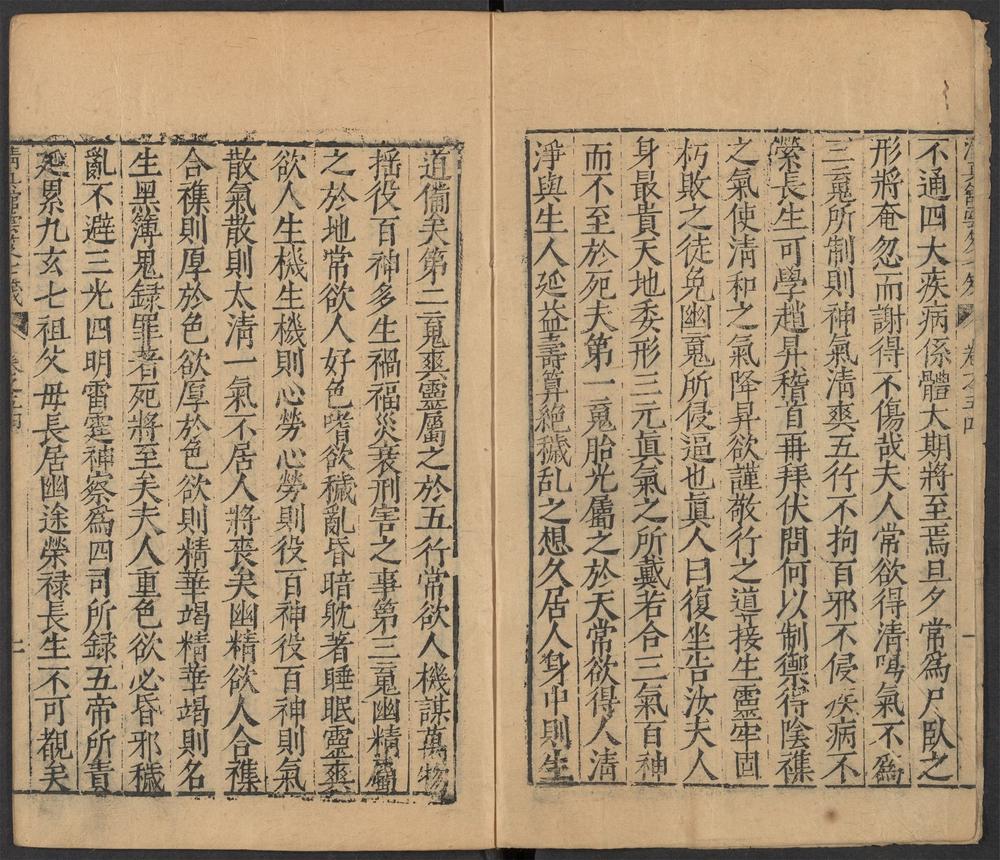 不通四大疾病係體大期將至焉旦夕常爲尸臥之
形將奄忽而謝得不傷哉夫人常欲得清鳴氣不爲
三䰟所制則神氣清爽五行不拘百邪不侵疾病不
縈長生可學趙昇稽首再拜伏問何以制禦得陰襍
之氣使清和之氣降昇欲謹敬行之導接生靈牢固
朽敗之徒免幽䰟所侵逼也眞人曰復坐告汝夫人
身最貴天地委形三元眞氣之所戴若合三氣百神
而不至於死夫第一䰟胎光屬之於天常欲得人清
淨與生人延益壽算絶穢乱之想久居人身中則生
道備矣第二䰟爽靈屬之於五行常欲人機謀萬物
揺役百神多生禍福災衰刑害之事第三䰟幽精屬
之於地常欲人好色嗜欲穢亂昏暗躭著睡眠靈爽
欲人生機生機則心勞心勞則役百神役百神則氣
散氣散則太清一氣不居人將喪矣幽精欲人合襍
合襍則厚於色欲厚於色欲則精華竭精華竭則名
生黒簿鬼録罪著死將至矣夫人重色欲必昏邪穢
亂不避三光四明雷霆神察爲四司所録五帝所責
延累九玄七祖父母長居幽途榮禄長生不可覩矣